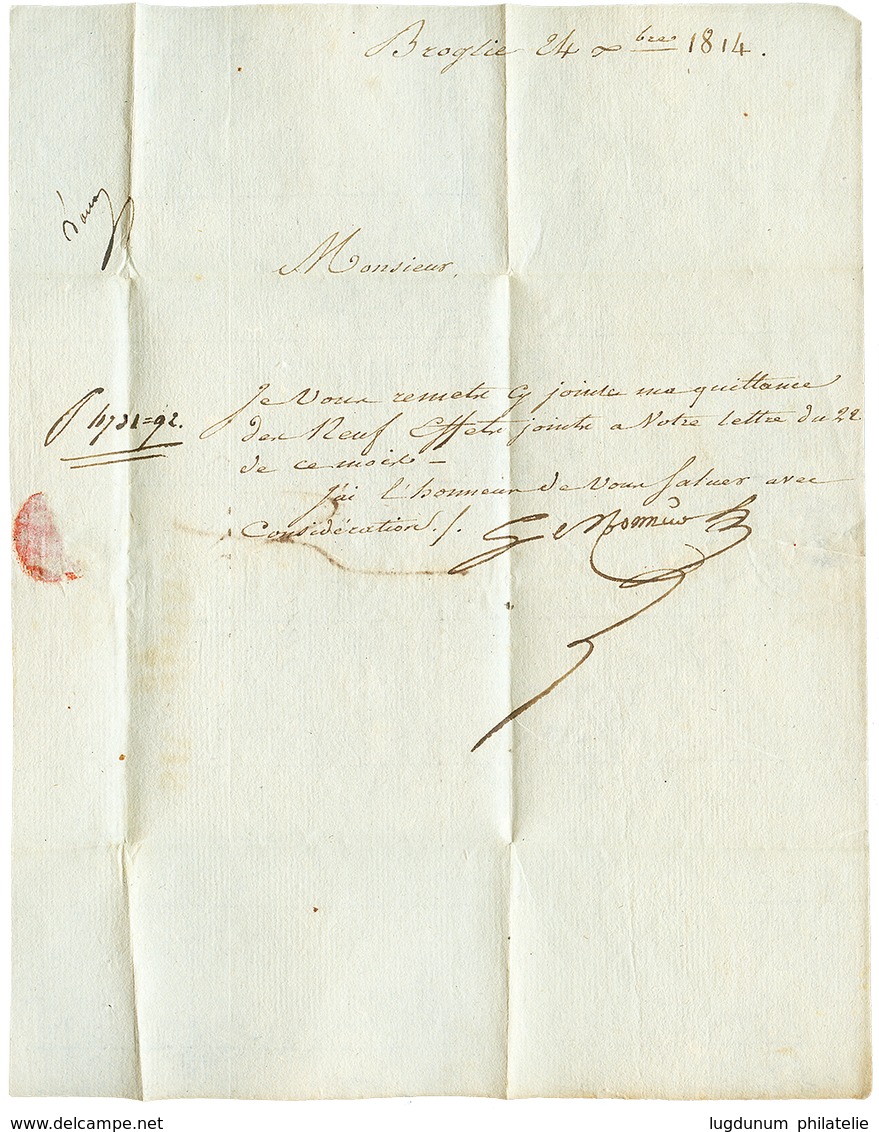 Broglie 24 xbre 1814.
Monsieur,
Je Vous remets cy jointe ma quittance
des Neuf Effets joints a Votre lettre du 22
de ce mois —
J'ai l'honneur de Vous Saluer avec
Considération ./.
www.delcampe.net
lugdunum philatelie